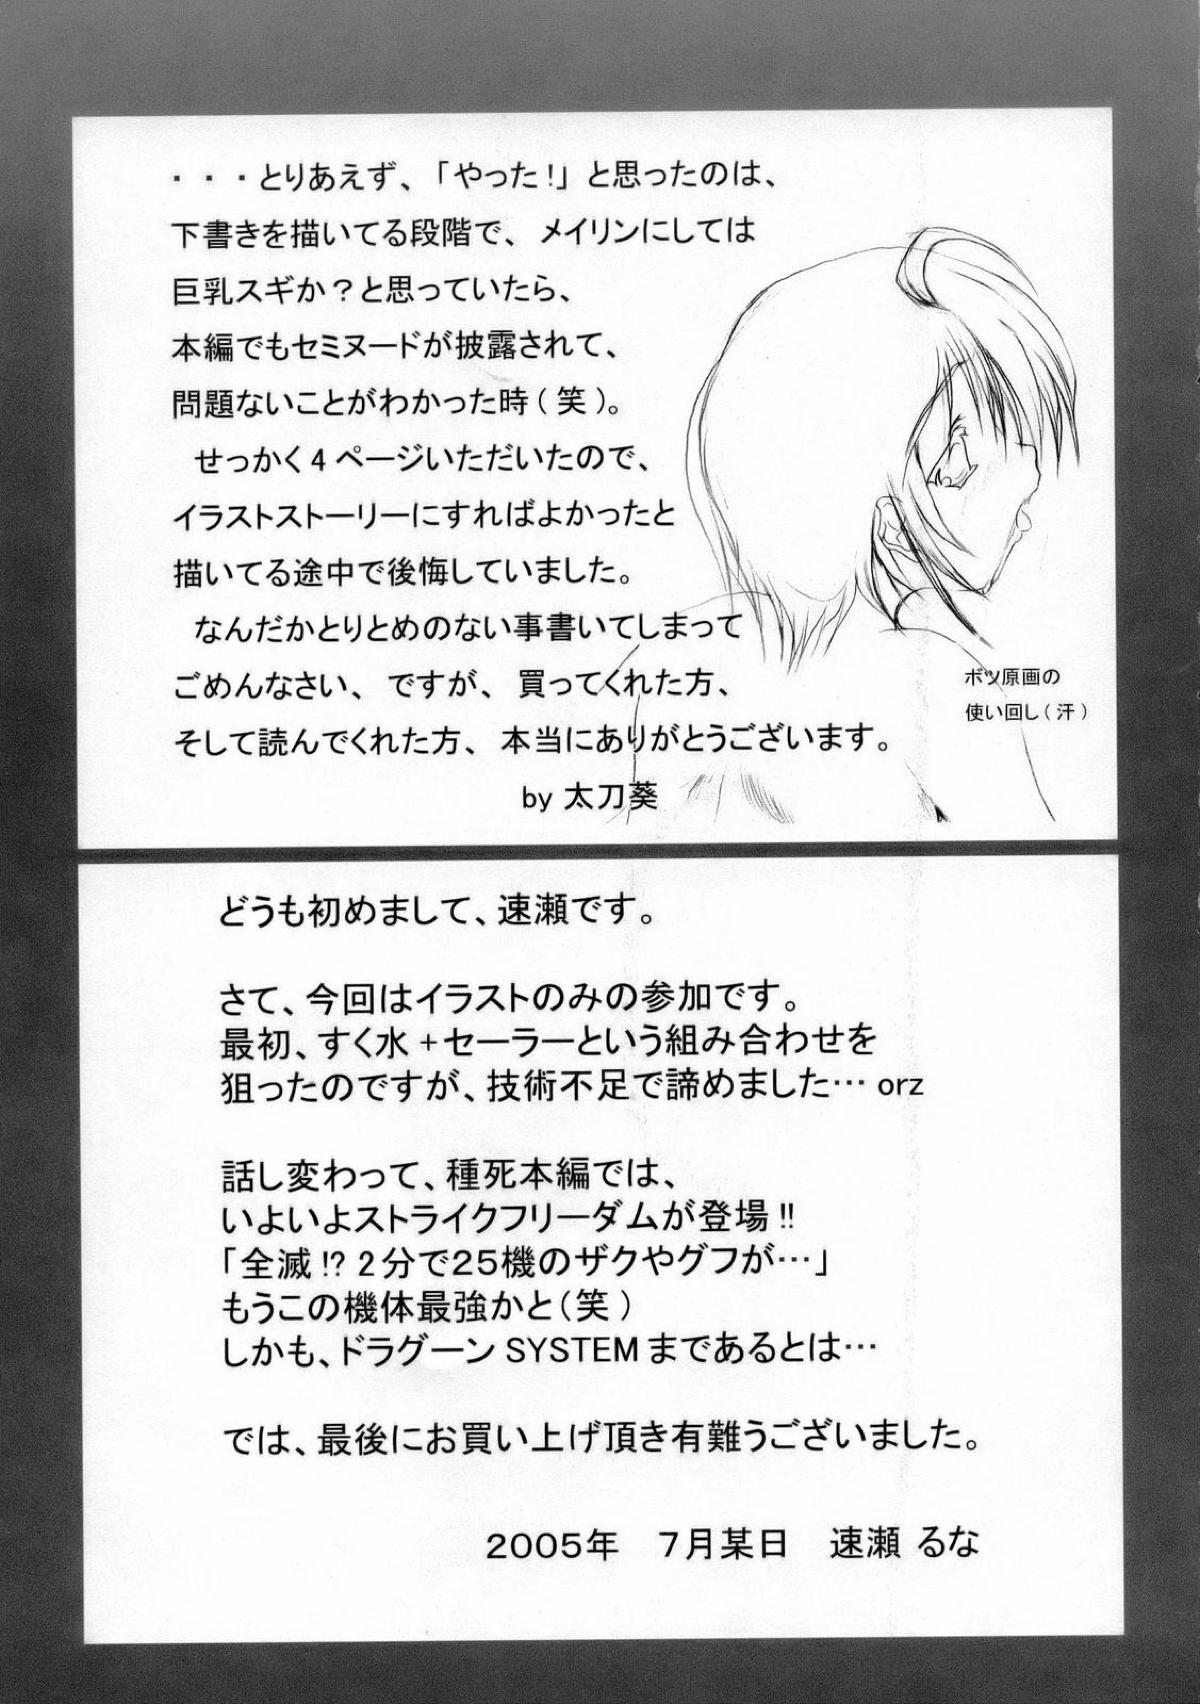 ・・・とりあえず、「やった!」と思ったのは、
下書きを描いてる段階で、メイリンにしては
巨乳スギか?と思っていたら、
本編でもセミヌードが披露されて、
問題ないことがわかった時(笑)。
せっかく4ページいただいたので、
イラストストーリーにすればよかったと
描いてる途中で後悔していました。
なんだかとりとめのない事書いてしまって
ごめんなさい、ですが、買ってくれた方、
そして読んでくれた方、本当にありがとうございます。
by 太刀葵
ボツ原画の
使い回し(汗)
どうも初めまして、速瀬です。
さて、今回はイラストのみの参加です。
最初、すく水+セーラーという組み合わせを
狙ったのですが、技術不足で諦めました…orz
話し変わって、種死本編では、
いよいよストライクフリーダムが登場!!
「全滅!?2分で25機のザクやグフが…」
もうこの機体最強かと(笑)
しかも、ドラグーンSYSTEMまであるとは…
では、最後にお買い上げ頂き有難うございました。
2005年 7月某日 速瀬 るな